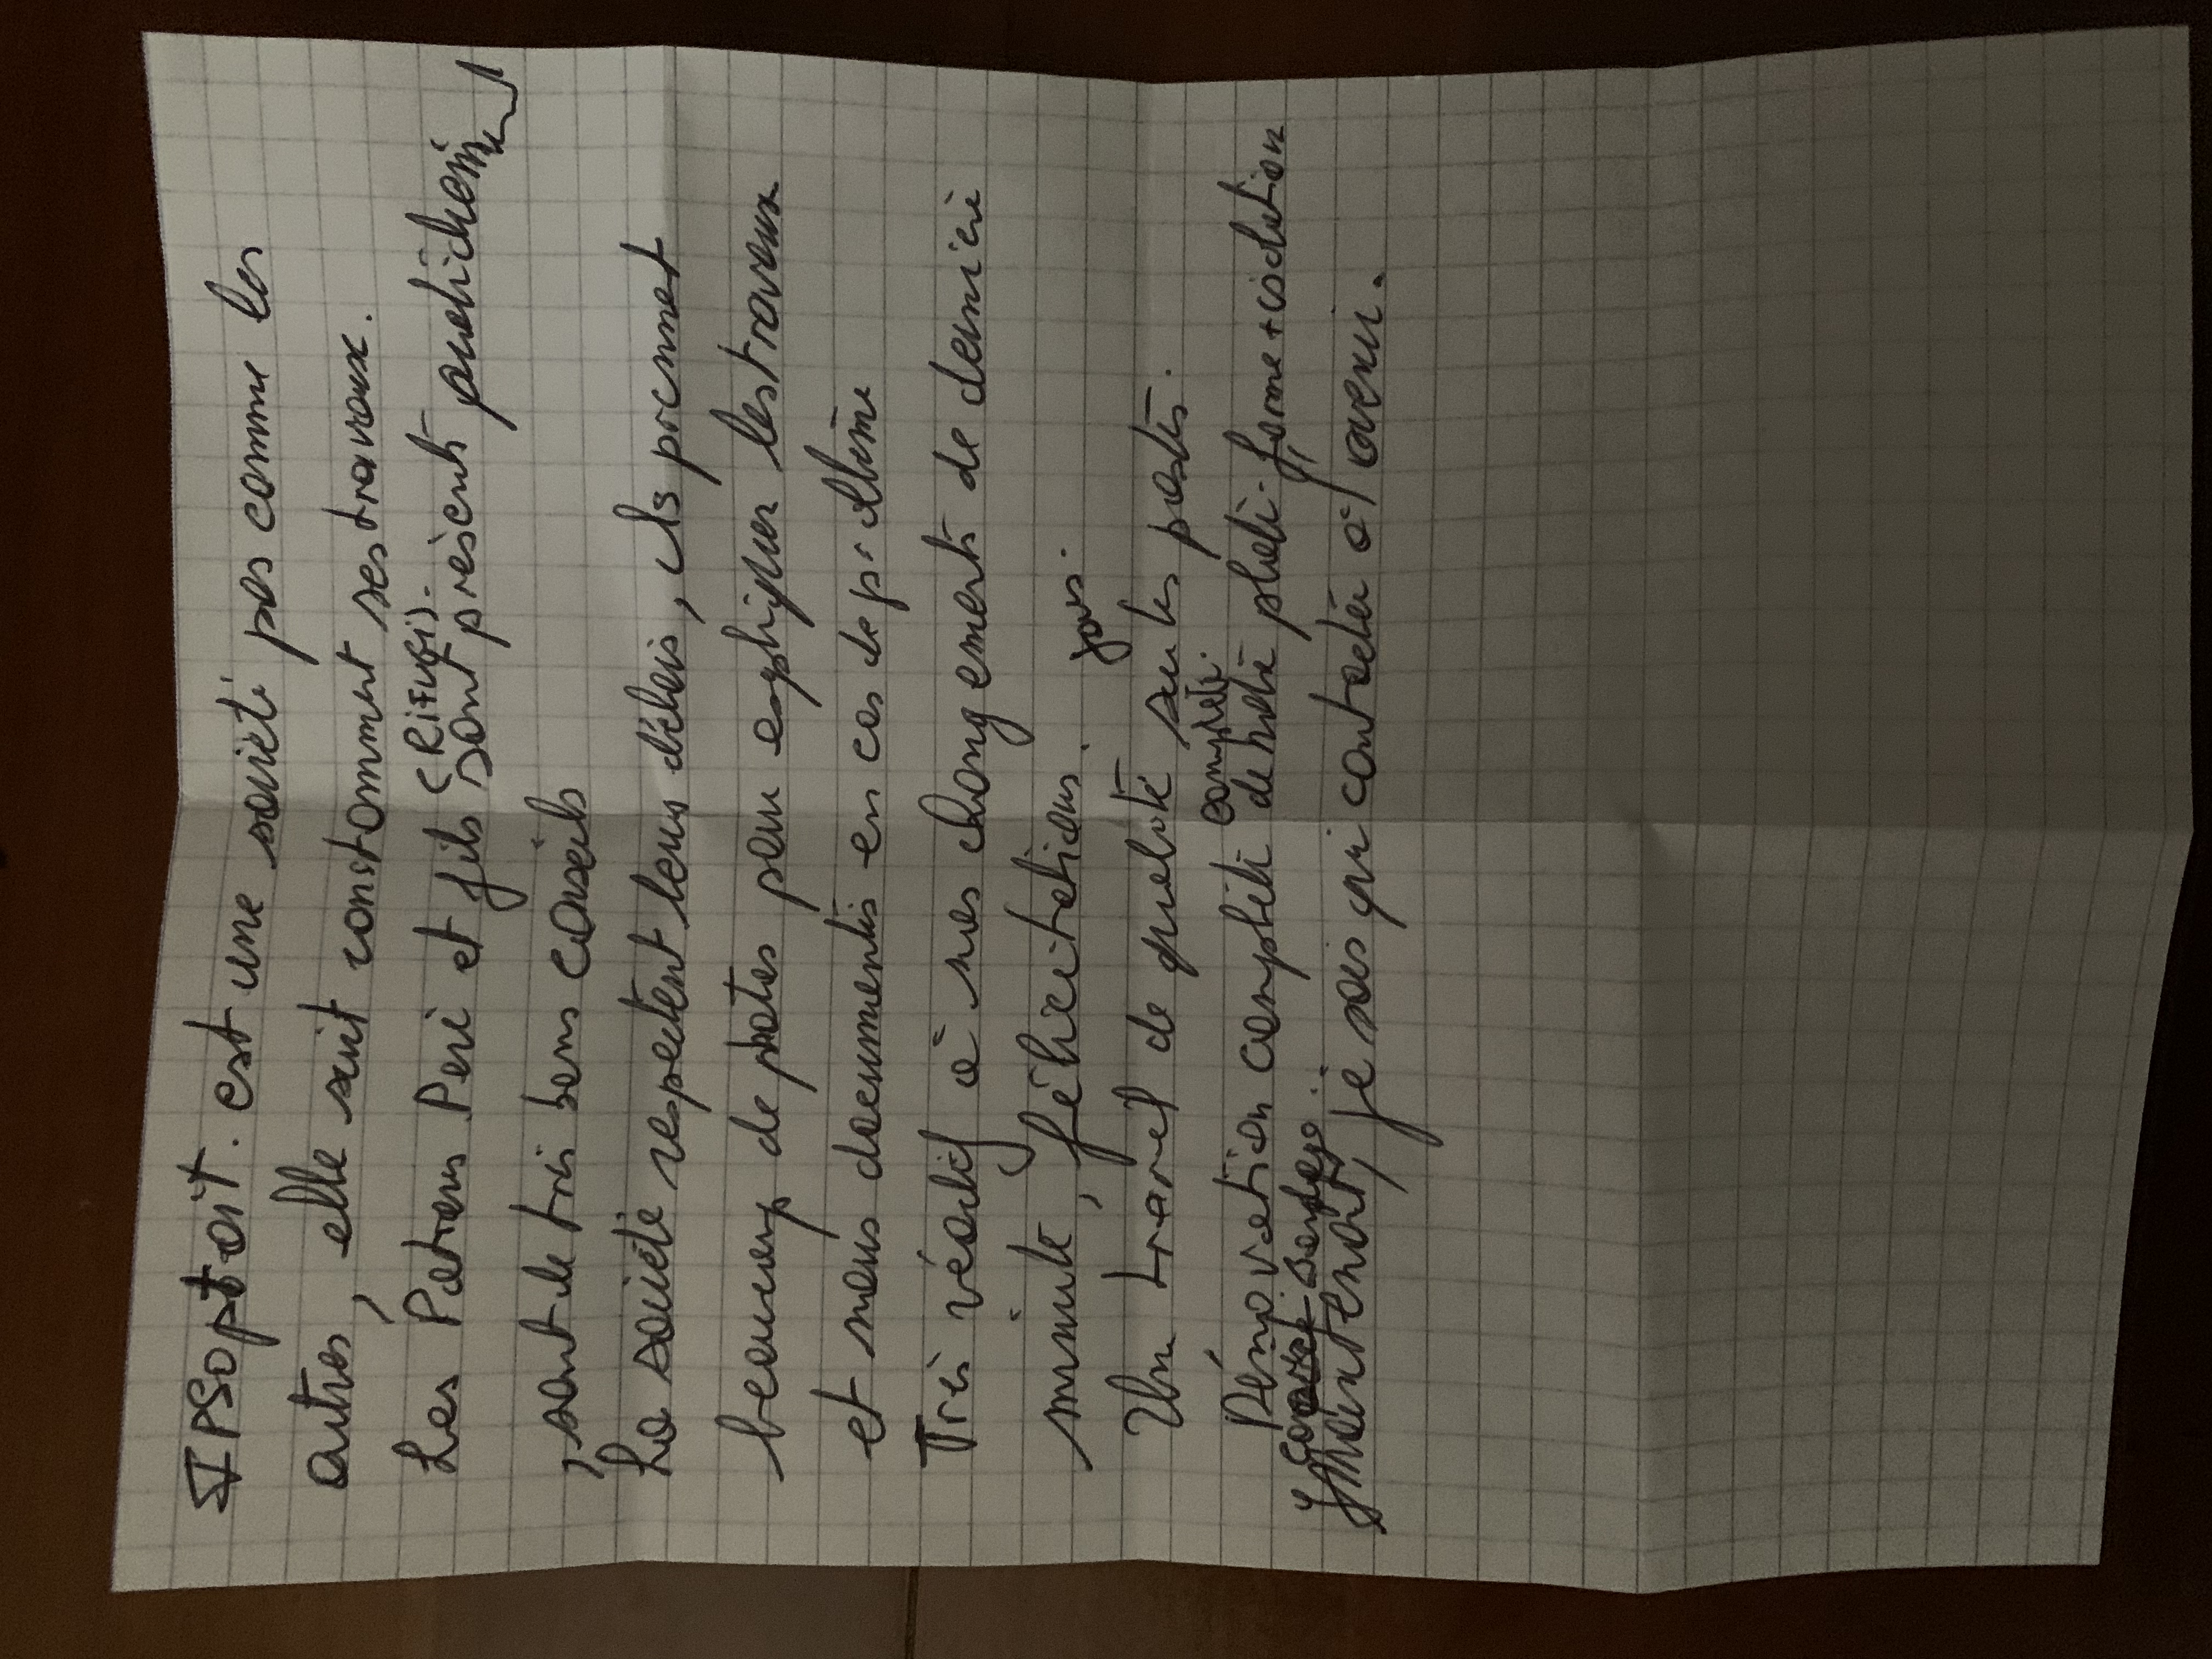 IPSoptoit. est une société pas comme les
autres, elle suit constamment ses travaux.
Les Patrons Père et fils (RiFugi).
sont présents quotidien
, sont de très bons conseils
La société respectent leurs délais, ils prennent
beaucoup de photos pour expliquer les travaux
et nous documentés en cas de problème
Très réactif à nos changements de dernière
minute, félicitations.
Un travail de qualité sur les postes.
Rénovation complète de notre plate-forme + isolation
complète.
Bardage.
Maintenant, je sais qui contacter à l'avenir.